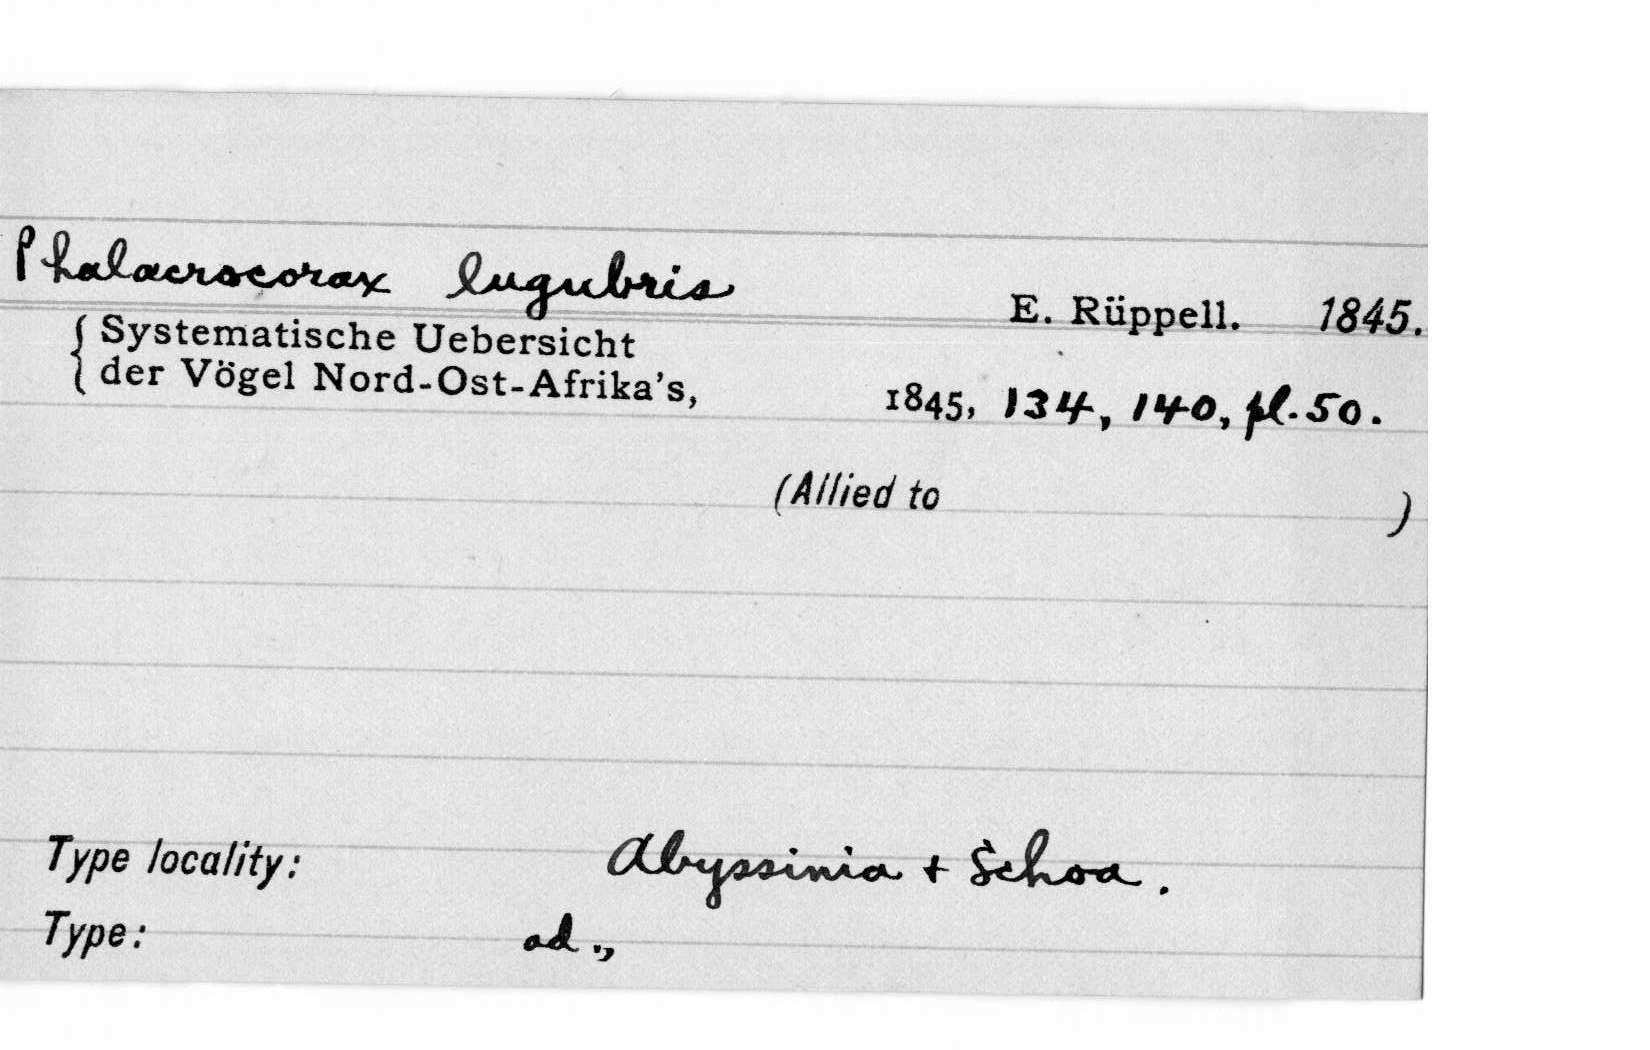 Phalacrocorax lugubris
E. Rüppell. 1845.
{ Systematische Uebersicht
{ der Vögel Nord-Ost-Afrika's,
1845, 134, 140, pl. 50.
(Allied to )
Type locality: Abyssinia + Schoa.
Type: ad.,